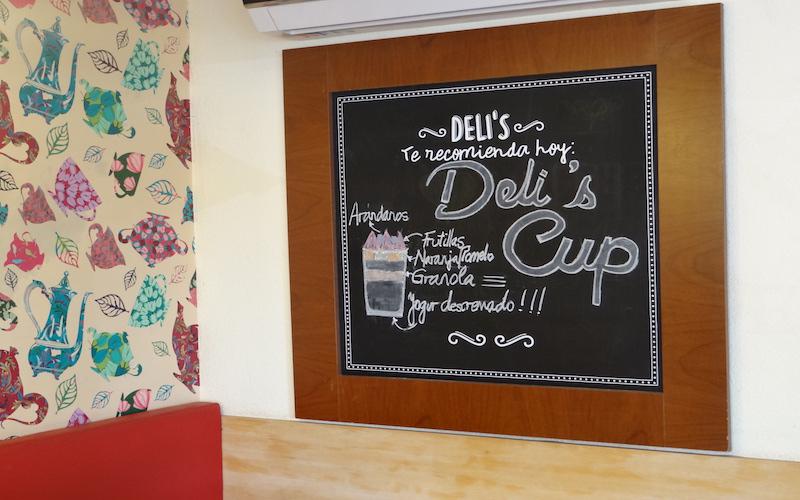 DELI'S
Te recomienda hoy:
Deli's
Cup
Arándanos
Frutillas
Naranja/Pomelo
Granola
Yogur descremado!!!